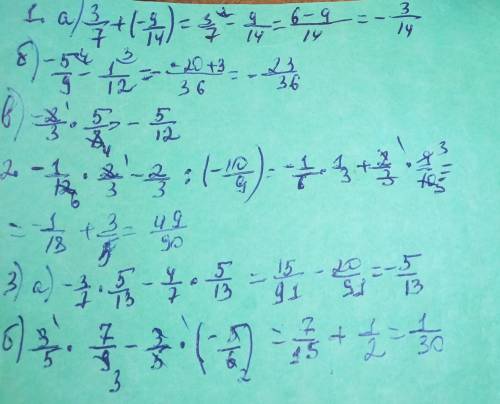 1. а) 3/7 + (-9/14) = 3²/7 - 9/14 = 6-9/14 = - 3/14
б) -5⁴/9 - 1³/12 = - -20+3/36 = - 23/36
в) -2¹/3 · 5/8₄ = - 5/12
2. -1/12₆ · 2¹/3 - 2/3 : (-10/9) = -1/6 · 1/3 + 2¹/3 · 9³/10₅ =
= -1/18 + 3/5 = 49/90
3) а) -3/7 · 5/13 - 4/7 · 5/13 = 15/91 - 20/91 = - 5/13
б) 3¹/5 · 7/9₃ - 3¹/5 · (-5/6₂) = 7/15 + 1/2 = 1/30